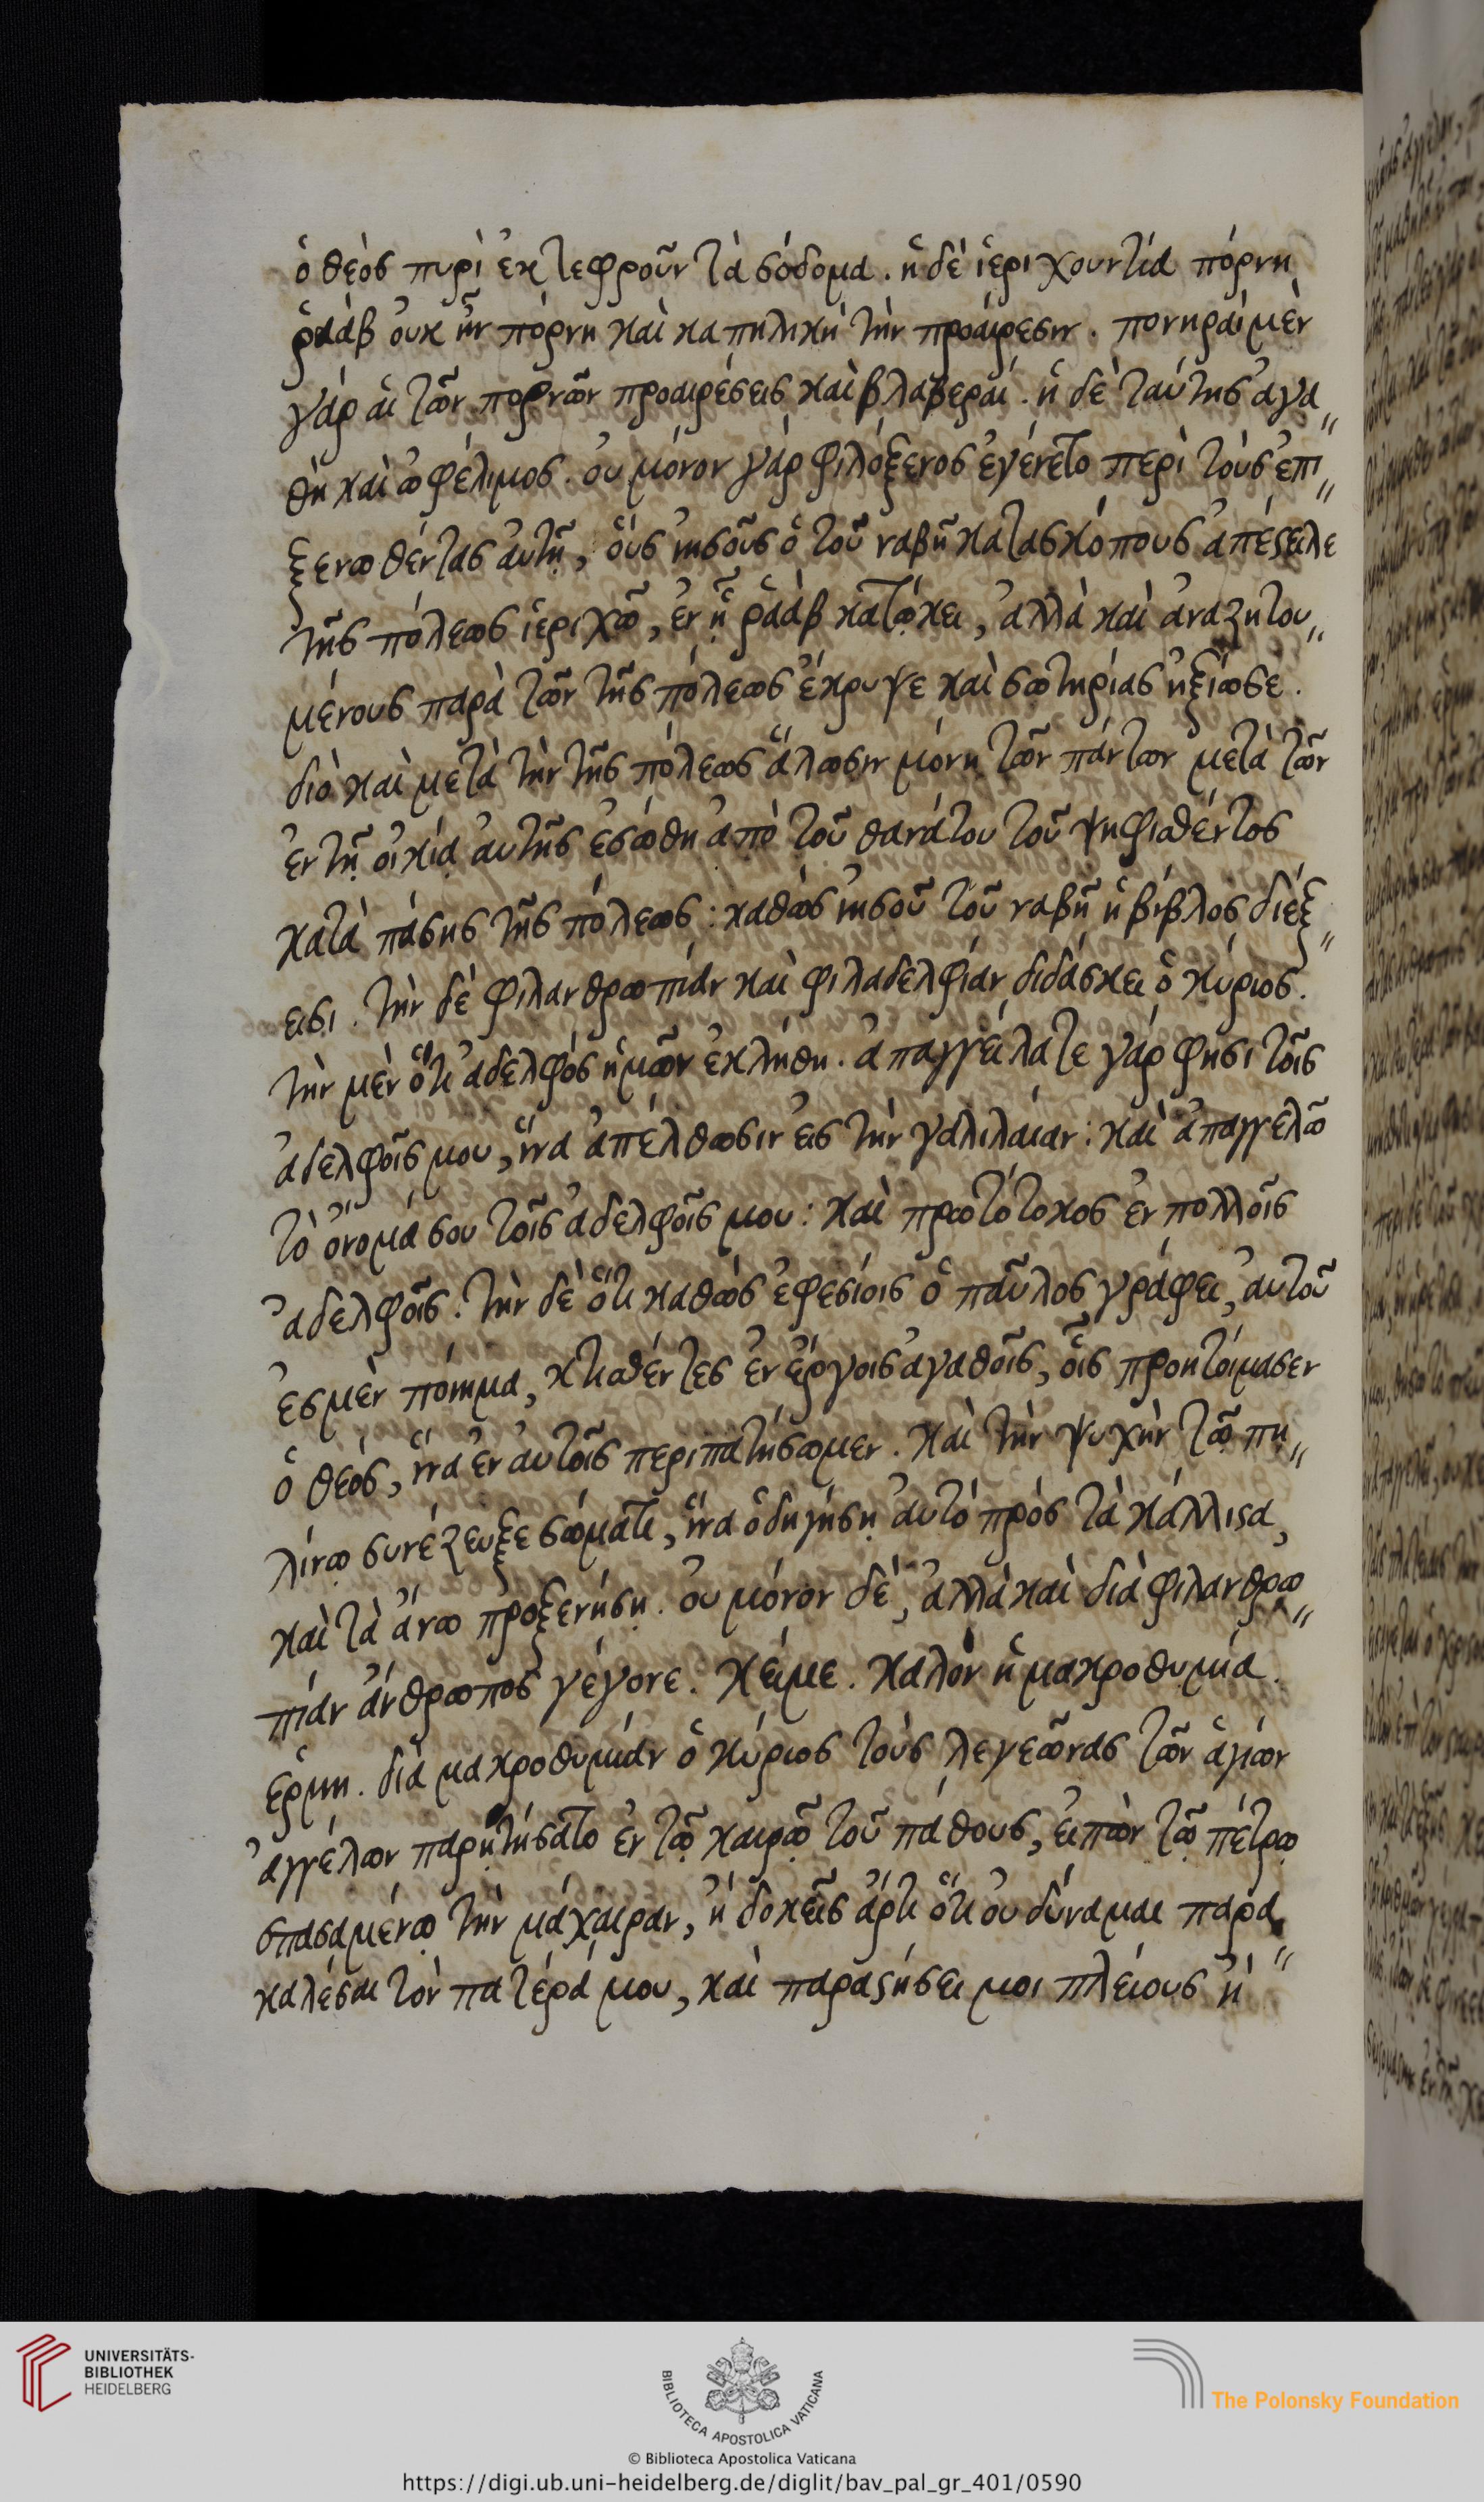 ὁ θεὸς πυρὶ ἐκτεφροῦν τὰ σόδομα. ἡ δὲ ἱεριχουντία πόρνη
ῥαὰβ οὐκ ἦν πόρνη καὶ καπηλικὴ τὴν προαίρεσιν. πονηραὶ μὲν
γάρ αἱ τῶν πορνῶν προαιρέσεις καὶ βλαβεραί. ἡ δὲ ταύτης ἀγα〃
θὴ καὶ ὠφέλιμος. οὐ μόνον γάρ φιλόξενος ἐγένετο περὶ τοὺς ἐπι〃
ξενωθέντας αὐτῇ, οὓς ἰησοῦς ὁ τοῦ ναβῆ κατασκόπους ἀπέστειλε
τῆς πόλεως ἱεριχῶ, ἐν ᾗ ῥαὰβ κατῴκει, ἀλλὰ καὶ ἀναζητου〃
μένους παρὰ τῶν τῆς πόλεως ἔκρυψε καὶ σωτηρίας ἠξίωσε.
διὸ καὶ μετὰ τὴν τῆς πόλεως ἅλωσιν μόνη τῶν πάντων μετὰ τῶν
ἐν τῇ οἰκίᾳ αὐτῆς ἐσώθη ἀπὸ τοῦ θανάτου τοῦ ψηφισθέντος
κατὰ πάσης τῆς πόλεως: καθὼς ἰησοῦ τοῦ ναβῆ ἡ βίβλος διέξ〃
εισι. τὴν δὲ φιλανθρωπίαν καὶ φιλαδελφίαν διδάσκει ὁ κύριος.
τὴν μὲν ὅτι ἀδελφὸς ἡμῶν ἐκλήθη. ἀπαγγείλατε γάρ φησι τοῖς
ἀδελφοῖς μου, ἵνα ἀπέλθωσιν εἰς τὴν γαλιλαίαν: καὶ ἀπαγγελῶ
τὸ ὄνομά σου τοῖς ἀδελφοῖς μου: καὶ πρωτότοκος ἐν πολλοῖς
ἀδελφοῖς. τὴν δὲ ὅτι καθὼς ἐφεσίοις ὁ παῦλος γράφει, αὐτοῦ
ἐσμὲν ποίημα, κτισθέντες ἐν ἔργοις ἀγαθοῖς, οἷς προητοίμασεν
ὁ θεὸς, ἵνα ἐν αὐτοῖς περιπατήσωμεν. καὶ τὴν ψυχὴν τῷ πη〃
λίνῳ συνέζευξε σώματι, ἵνα ὁδηγήσῃ αὐτὸ πρὸς τὰ κάλλιστα,
καὶ τὰ ἄνω προξενήσῃ. οὐ μόνον δὲ, ἀλλὰ καὶ διὰ φιλανθρω〃
πίαν ἄνθρωπος γέγονε. κείμε. καλὸν ἡ μακροθυμία.
ἑρμη. διὰ μακροθυμίαν ὁ κύριος τοὺς λεγεῶνας τῶν ἁγίων
ἀγγέλων παρῃτήσατο ἐν τῷ καιρῷ τοῦ πάθους, εἰπὼν τῷ πέτρῳ
σπασαμένῳ τὴν μάχαιραν, ἢ δοκεῖς ἄρτι ὅτι οὐ δύναμαι παρα〃
καλέσαι τὸν πατέρά μου, καὶ παραστήσει μοι πλείους ἢ
UNIVERSITÄTS-
BIBLIOTHEK
HEIDELBERG
BIBLIOTECA APOSTOLICA VATICANA
The Polonsky Foundation
© Biblioteca Apostolica Vaticana
https://digi.ub.uni-heidelberg.de/diglit/bav_pal_gr_401/0590